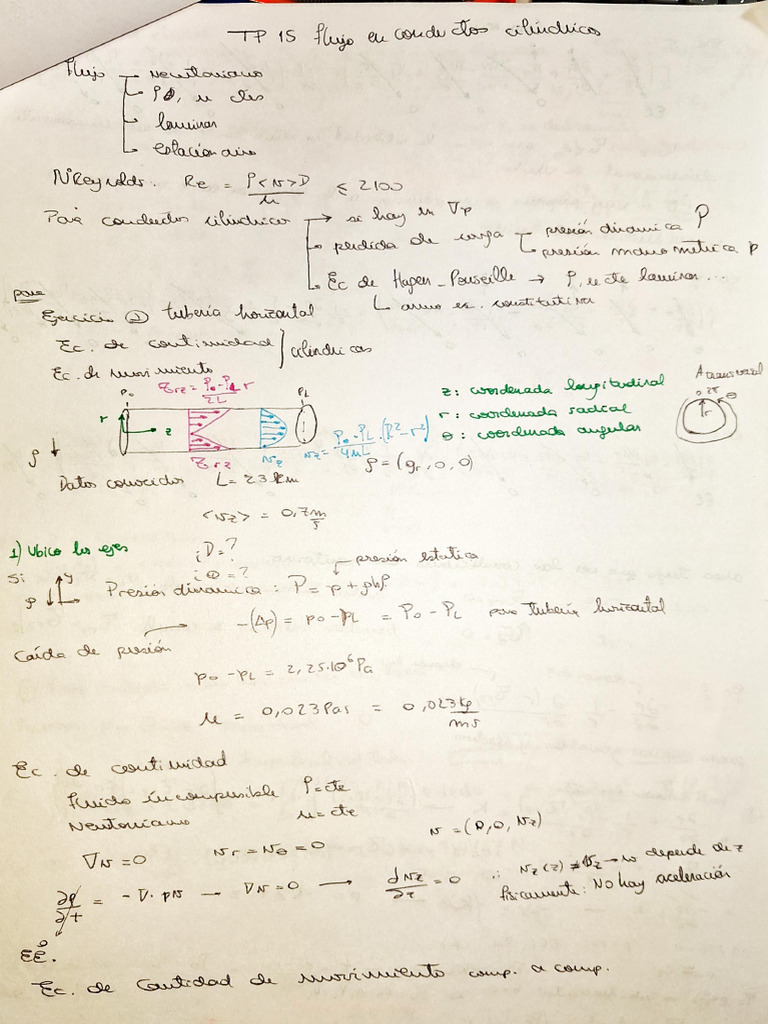 TP 15 Flujo en conductos cilíndricos
Flujo Newtoniano
ρ, μ ctes
laminar
estacionario
N°Reynolds. Re = ρ<v>D/μ ≤ 2100
Para conductos cilíndricos → si hay un ∇p
pérdida de carga presión dinámica P
presión manométrica p
Ec de Hagen-Pouseille → ρ, μ cte laminar ...
para
Ejercicio ② tubería horizontal
Ec. de continuidad
Ec. de movimiento
cilíndricas
τrz = P0-PL/2L r
P0
PL
r
z
g
τrz
vz
vz = P0-PL/4μL . (R²-r²)
z: coordenada longitudinal
r: coordenada radial
θ: coordenada angular
A transversal
0 2π
θ
r
g = (gr, 0, 0)
Datos conocidos L = 23 km
<vz> = 0,7 m/s
1) Ubico los ejes
¿D=?
¿Q=?
presión estática
Si
y
g
Presión dinámica: P = p + ρhg
-(Δp) = p0-pL = P0 - PL para tubería horizontal
Caída de presión
p0-pL = 2,25.10⁶ Pa
μ = 0,023 Pas = 0,023 kg/ms
Ec. de continuidad
Fluido incompresible ρ=cte
Newtoniano μ=cte
v = (0, 0, vz)
∇v = 0 vr = vθ = 0
∂ρ/∂t = -∇. ρv → ∇v = 0 → ∂vz/∂z = 0 ∴ vz(z) ≠ vz → no depende de z
Físicamente: No hay aceleración
EE.
0
Ec. de Cantidad de movimiento comp. a comp.